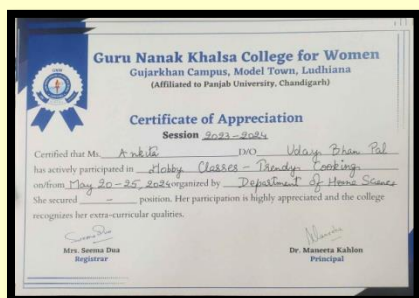 Guru Nanak Khalsa College for Women
Gujarkhan Campus, Model Town, Ludhiana
(Affiliated to Panjab University, Chandigarh)
Certificate of Appreciation
Session 2023-2024
Certified that Ms. Ankita D/O Uday Bhan Pal
has actively participated in Hobby Classes - Trendy Cooking
on/from May 20-25, 2024 organized by Department of Home Science
She secured - position. Her participation is highly appreciated and the college
recognizes her extra-curricular qualities.
Mrs. Seema Dua
Registrar
Dr. Maneeta Kahlon
Principal